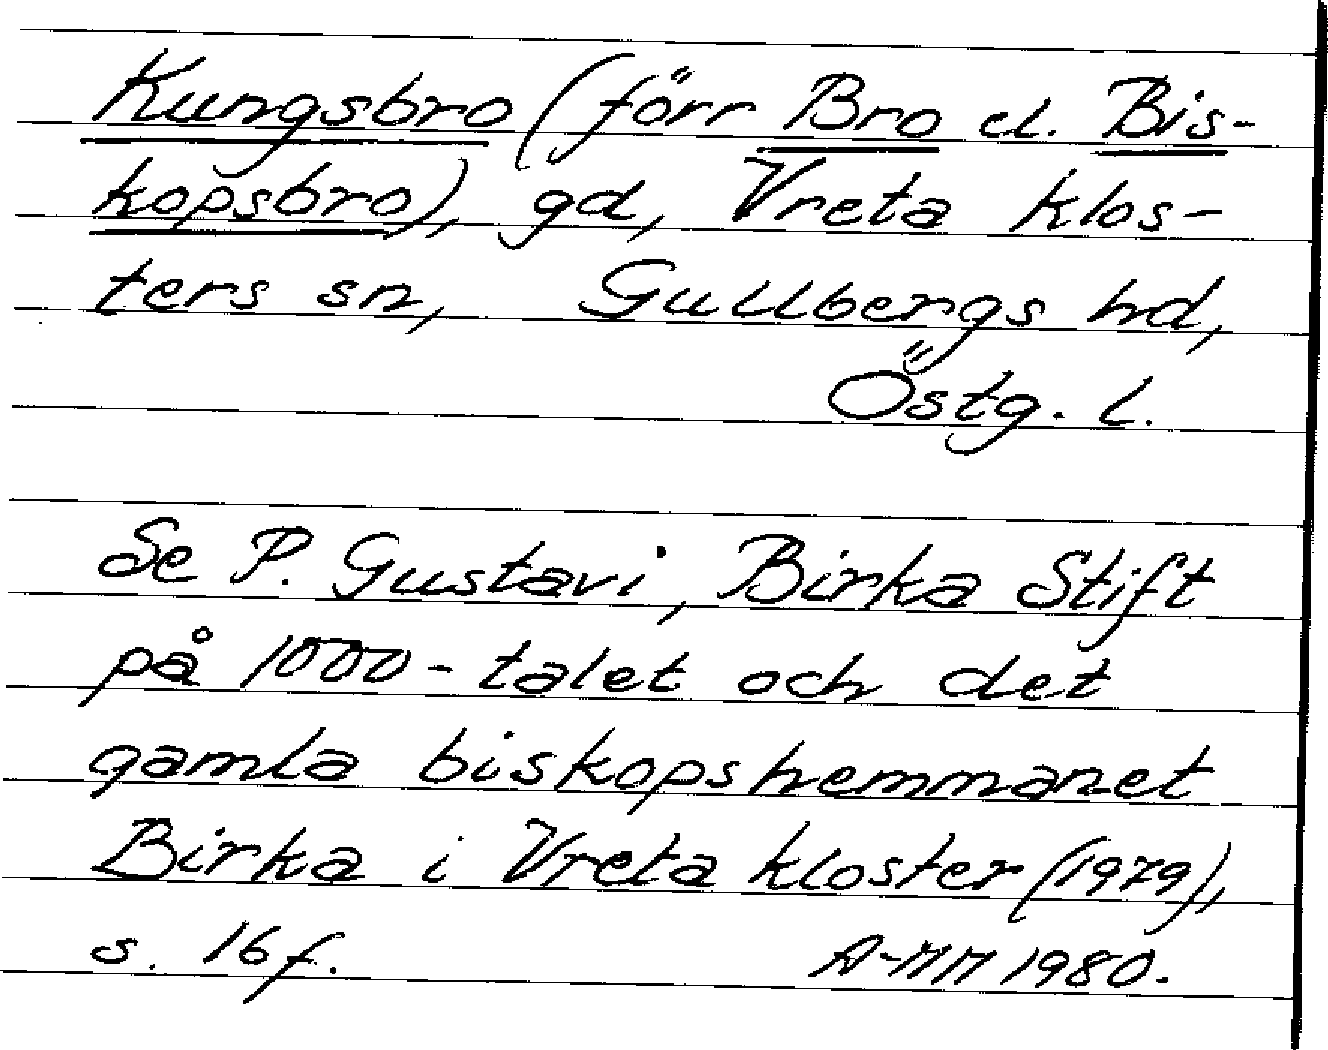 Kungsbro (förr Bro el. Bis-
kopsbro), gd, Vreta klos-
ters sn, Gullbergs hd,
Östg. l.
Se P. Gustavi, Birka Stift
på 1000-talet och det
gamla biskopshemmanet
Birka i Vreta kloster (1979),
s. 16 f.
A-MM 1980.